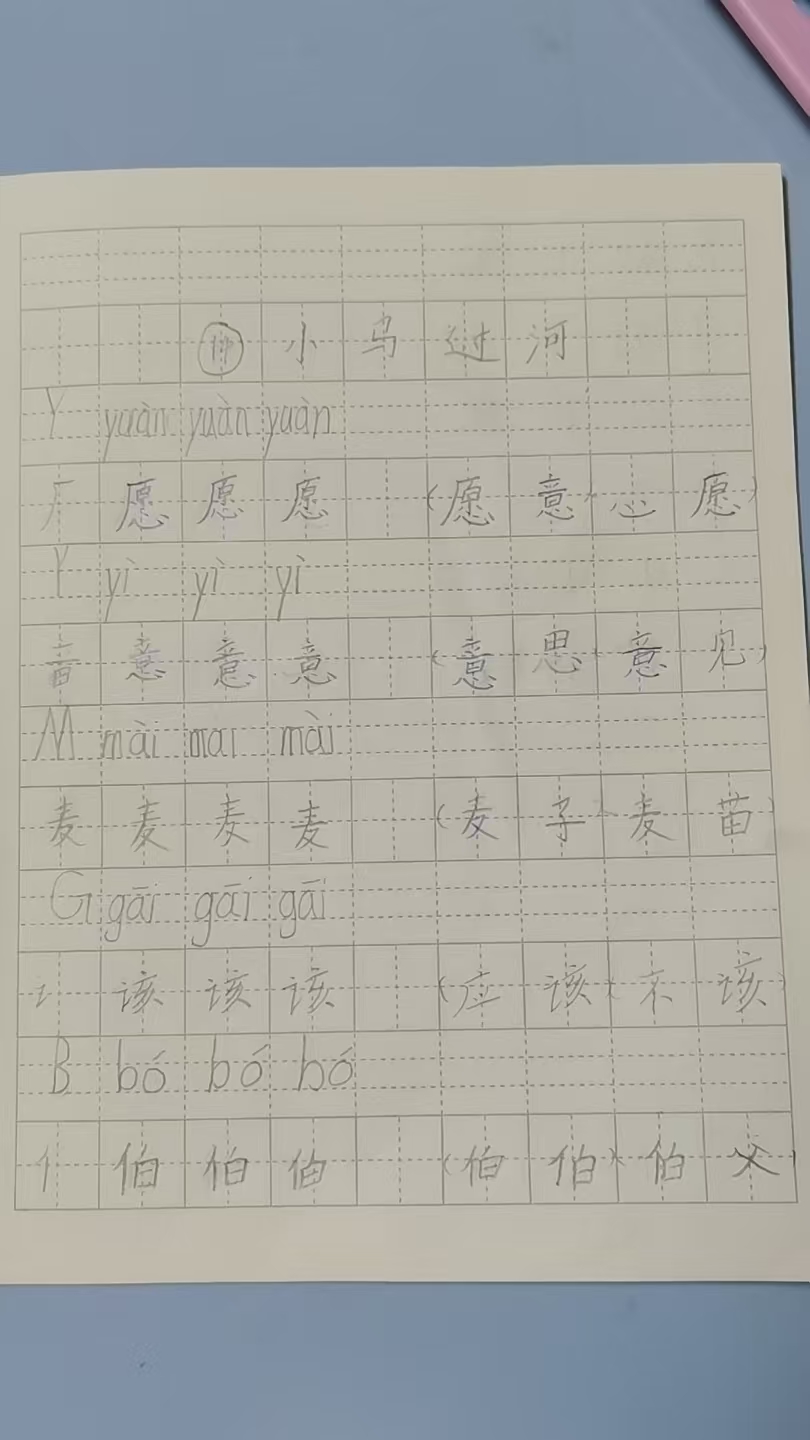 小马过河
Y yuàn yuàn yuàn
厂 愿 愿 愿 (愿意 心愿)
Y yì yì yì
音 意 意 意 (意思 意见)
M mài mai mài
麦 麦 麦 麦 (麦子 麦苗)
G gāi gāi gāi
讠 该 该 该 (应该 不该)
B bó bó bó
亻 伯 伯 伯 (伯伯 伯父